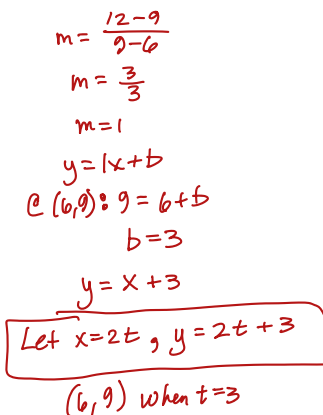 m = 12-9 / 9-6
m = 3/3
m=1
y=1x+b
@ (6,9): 9 = 6+b
b=3
y = x +3
Let x=2t, y=2t+3
(6,9) when t=3